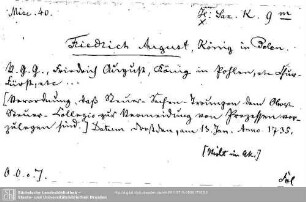 Misc. 40.
Sax. K. 9 m
Friedrich August, König in Polen.
V. G. G., Friedrich August, König in Pohlen, etc. Chur-
fürst, etc ...
[Verordnung, daß Steuer- Sachen Irrungen dem Ober-
Steuer-Collegio zur Vermeidung von Prozessen vor-
zulegen sind.] Datum Dresden, am 13. Jan. Anno 1735.
[Nicht in AK.]
O. O. o. J.
Fol
Sächsische Landesbibliothek -
Staats- und Universitätsbibliothek Dresden